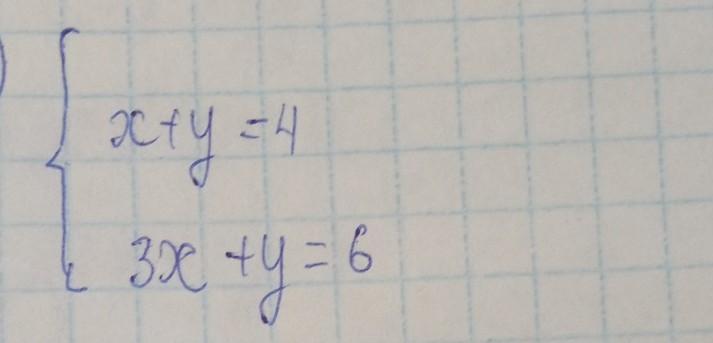 x+y=4
3x+y=6